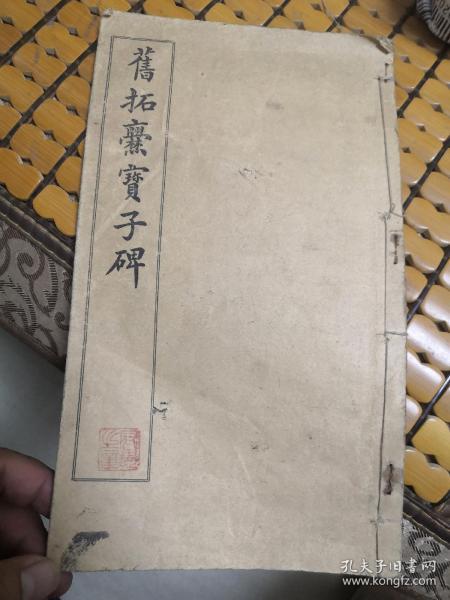 舊拓爨寶子碑
孔夫子旧书网
www.kongfz.com